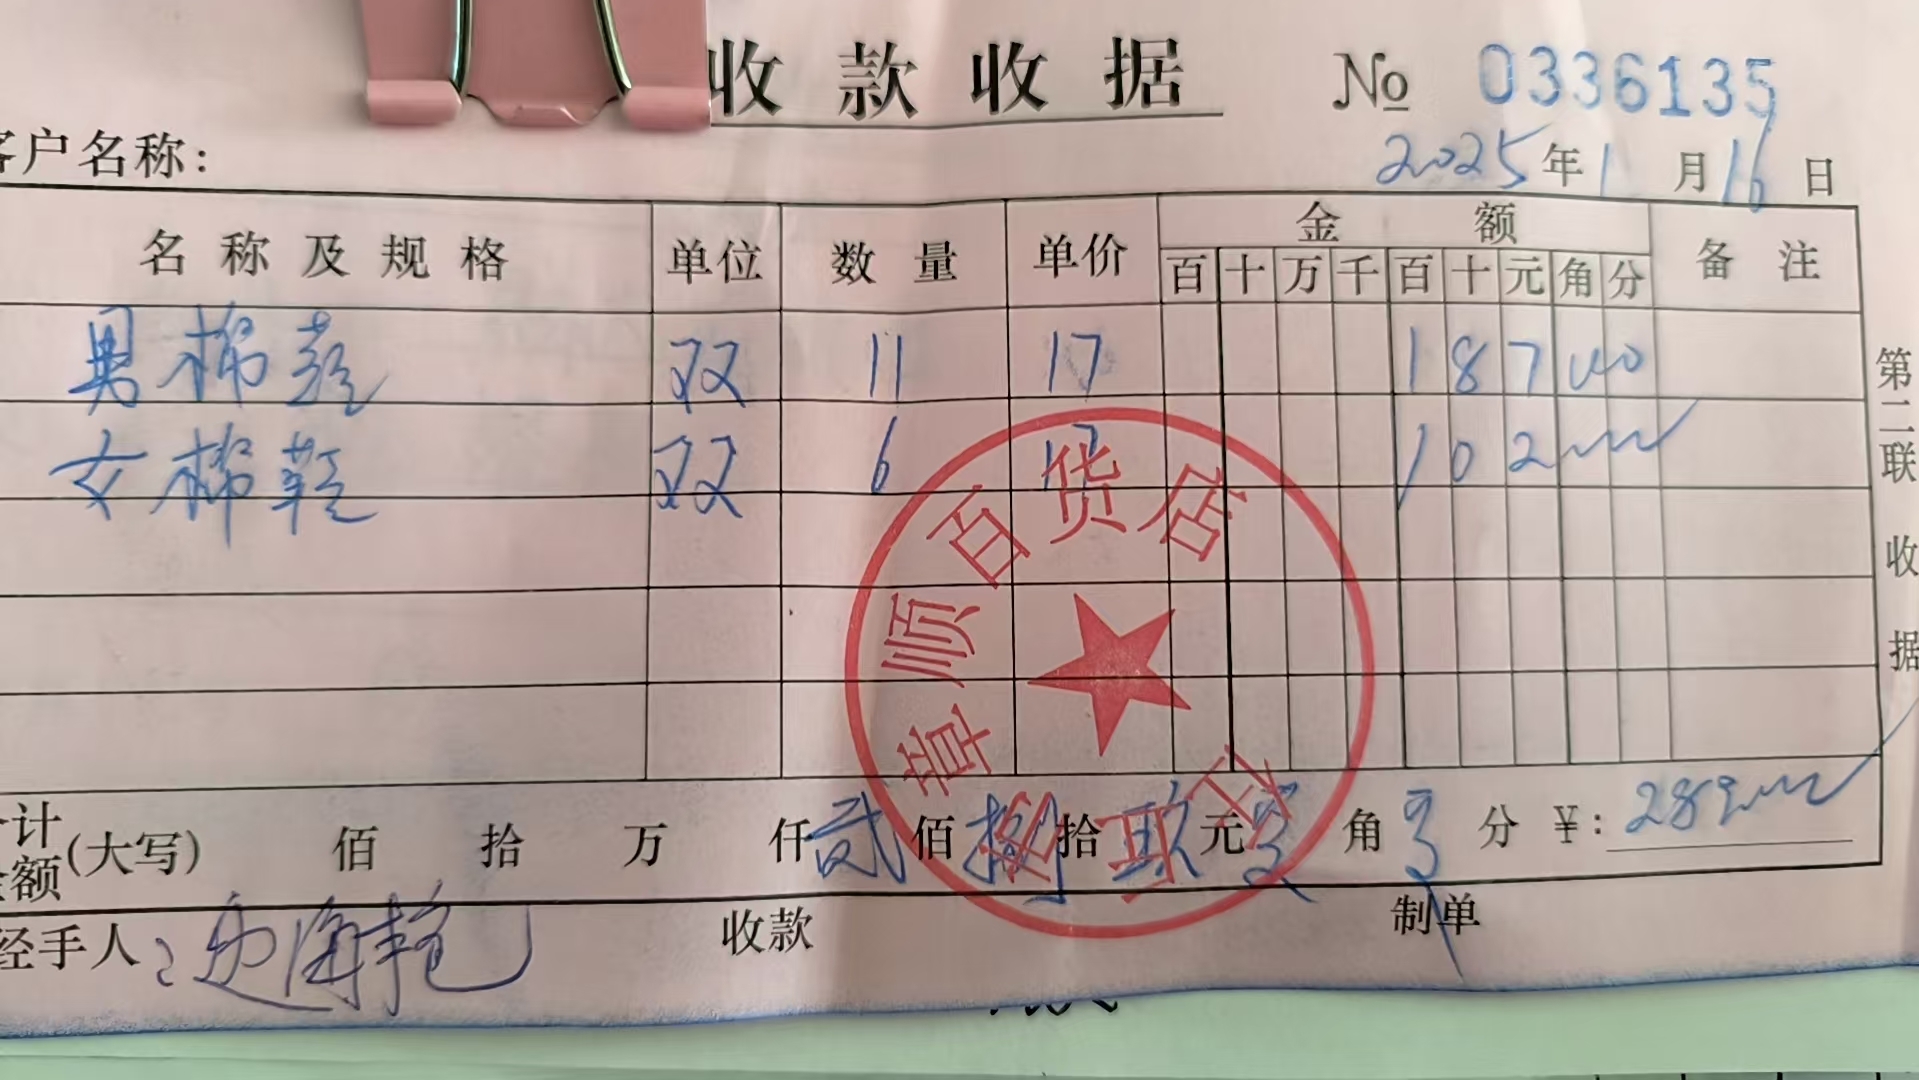 收款收据 № 0336135
客户名称:
2025年1月16日
名称及规格 单位 数量 单价 金额 备注
百 十 万 千 百 十 元 角 分
男棉鞋 双 11 17 1 8 7 0 0
女棉鞋 双 6 17 1 0 2
合计金额(大写) 佰 拾 万 仟 贰 佰 捌 拾 玖 元 零 角 零 分 ¥: 289
经手人: 收款 制单
第二联 收据
章顺百货店